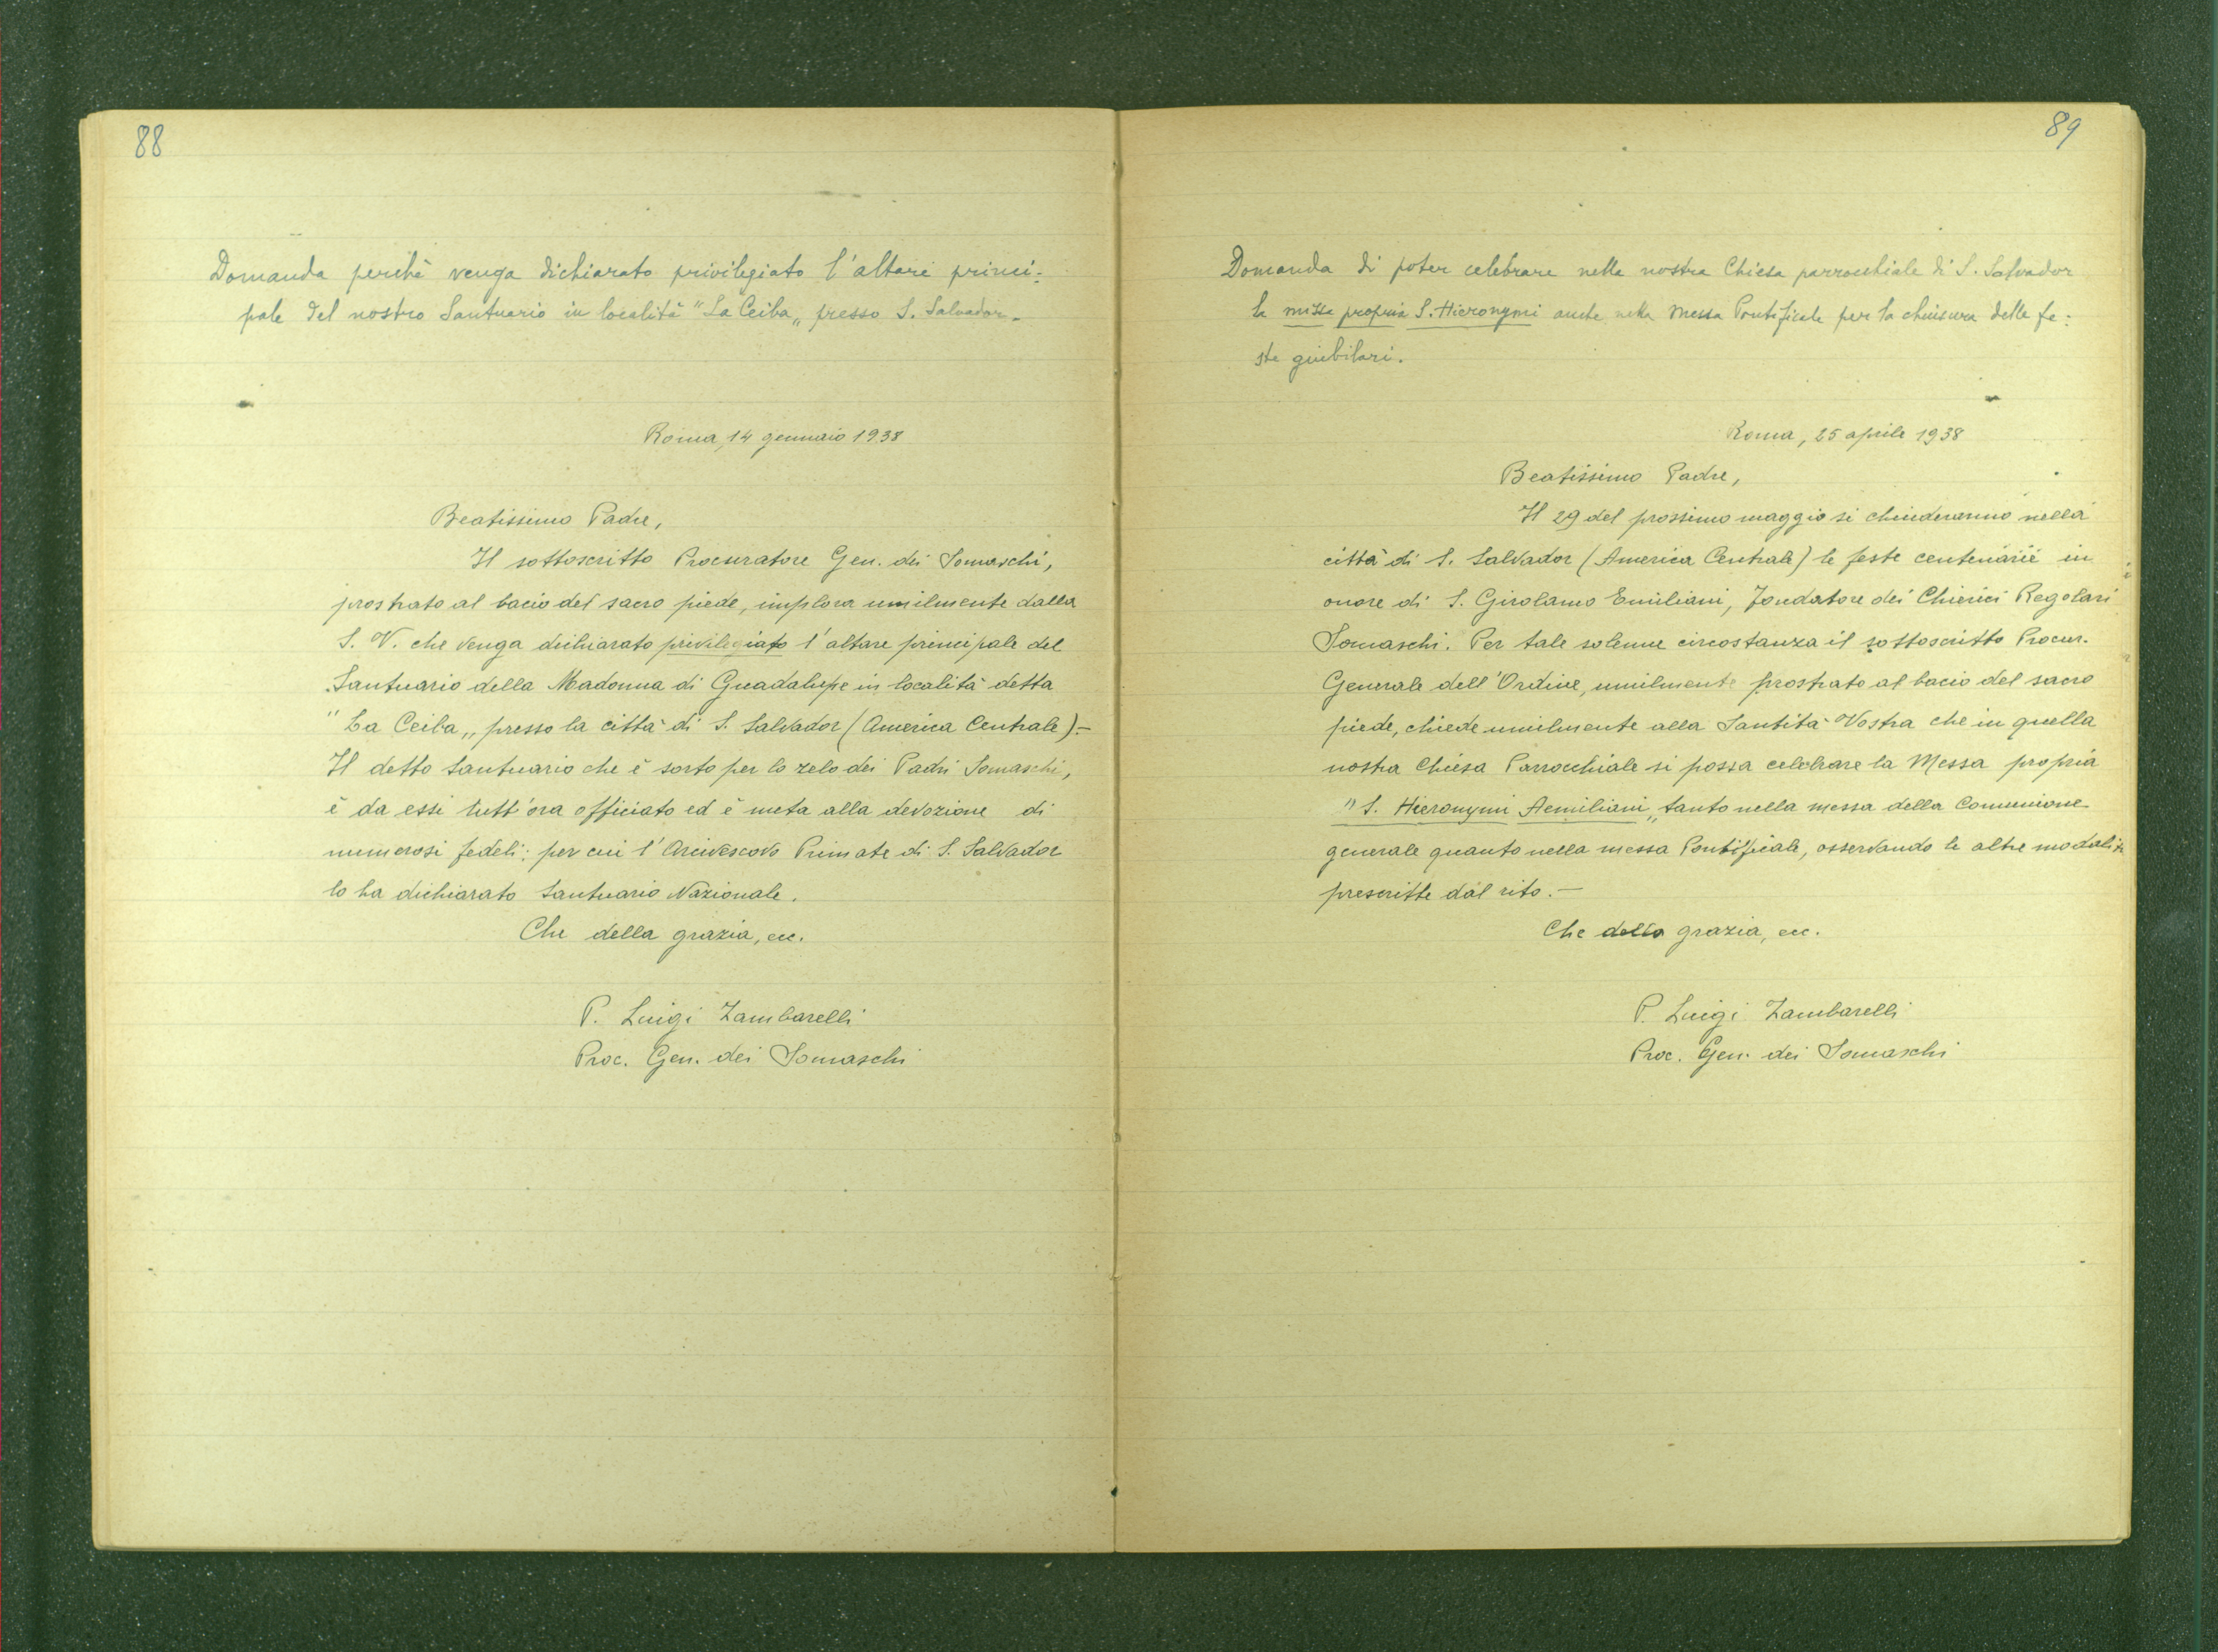 88
Domanda perchè venga dichiarato privilegiato l'altare princi-
pale del nostro Santuario in località "La Ceiba„ presso S. Salvador.
Roma, 14 gennaio 1938
Beatissimo Padre,
Il sottoscritto Procuratore Gen. dei Somaschi,
prostrato al bacio del sacro piede, implora umilmente dalla
S. V. che venga dichiarato privilegiato l'altare principale del
Santuario della Madonna di Guadalupe in località detta
"La Ceiba„ presso la città di S. Salvador (America Centrale).-
Il detto Santuario che è sorto per lo zelo dei Padri Somaschi,
è da essi tutt'ora officiato ed è meta alla devozione di
numerosi fedeli; per cui l'Arcivescovo Primate di S. Salvador
lo ha dichiarato Santuario Nazionale.
Che della grazia, ecc.
P. Luigi Zambarelli
Proc. Gen. dei Somaschi
89
Domanda di poter celebrare nella nostra Chiesa parrocchiale di S. Salvador
la missa propria S. Hieronymi anche nella Messa Pontificale per la chiusura delle fe:
ste giubilari.
Roma, 25 aprile 1938
Beatissimo Padre,
Il 29 del prossimo maggio si chiuderanno nella
città di S. Salvador (America Centrale) le feste centenarie in
onore di S. Girolamo Emiliani, Fondatore dei Chierici Regolari
Somaschi. Per tale solenne circostanza il sottoscritto Procur.
Generale dell'Ordine, umilmente prostrato al bacio del sacro
piede, chiede umilmente alla Santità Vostra che in quella
nostra Chiesa Parrocchiale si possa celebrare la Messa propria
"S. Hieronymi Aemiliani„ tanto nella messa della Comunione
generale quanto nella messa Pontificale, osservando le altre modalità
prescritte dal rito.-
Che della grazia, ecc.
P. Luigi Zambarelli
Proc. Gen. dei Somaschi